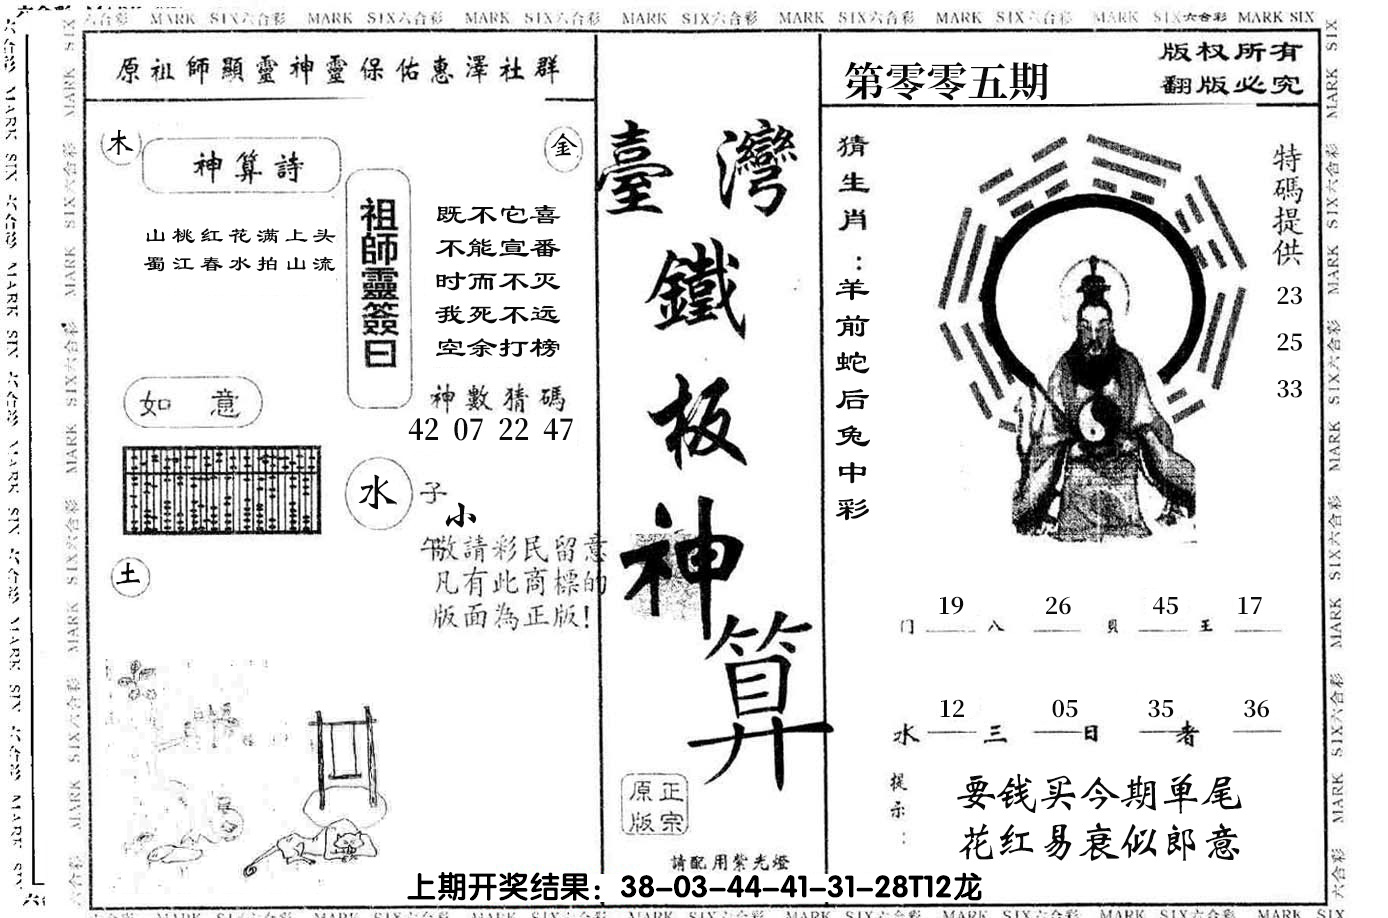 MARK SIX六合彩 MARK SIX六合彩 MARK SIX六合彩 MARK SIX六合彩 MARK SIX六合彩 MARK SIX六合彩 MARK SIX六合彩 MARK SIX
原祖師顯靈神靈保佑惠澤社群
木
金
神算詩
山桃红花满上头
蜀江春水拍山流
祖師靈簽曰
既不它喜
不能宣番
时而不灭
我死不远
空余打榜
如意
神數猜碼
42 07 22 47
水
子
小
午
敬請彩民留意
凡有此商標的
版面為正版!
土
臺灣
鐵
板
神
算
原正
版宗
請配用紫光燈
第零零五期
版权所有
翻版必究
猜生肖:羊前蛇后兔中彩
特碼提供
23
25
33
19 26 45 17
门 八 貝 王
12 05 35 36
水 三 日 者
提示:
要钱买今期单尾
花红易衰似郎意
上期开奖结果：38-03-44-41-31-28T12龙